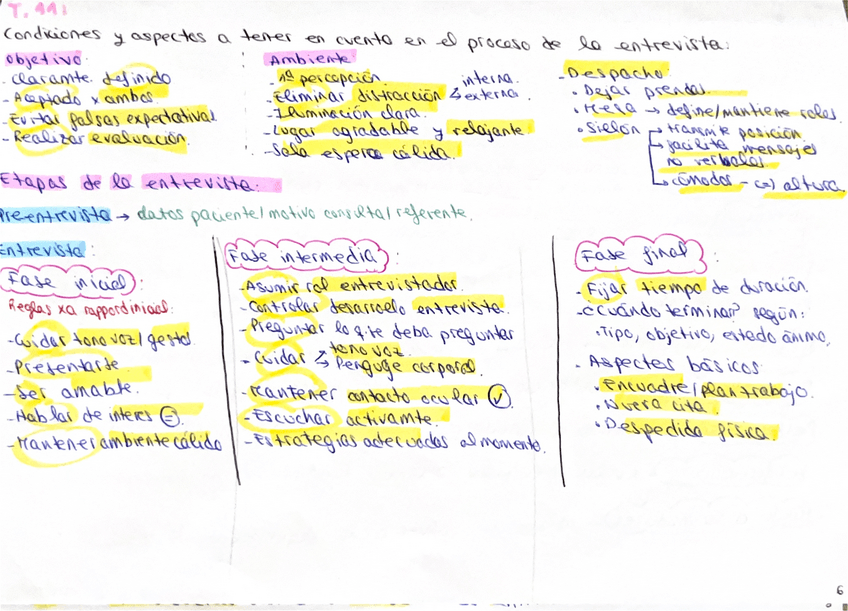 T. 11:
Condiciones y aspectos a tener en cuenta en el proceso de la entrevista:
Objetivo:
· Claramte. definido
- Aceptado x ambos.
- Evitar falsas expectativas
- Realizar evaluación.
Ambiente
- nº percepción
- Eliminar distracción
interna.
externa.
- Iluminación clara.
- Lugar agradable y relajante
- Sala espera cálida.
- Despacho
• Dejar prendas.
• Mesa → define/mantiene roles.
• Sillón → transmite posición.
→ facilita mensajes
no verbales.
→ cómodos - (=) altura.
Etapas de la entrevista:
Pre-entrevista → datos paciente/motivo consulta/referente.
Entrevista:
Fase inicial:
Reglas xa rapport inicial:
- Cuidar tono voz/gestos
- Presentarse.
- Ser amable.
- Hablar de interés (=)
- Mantener ambiente cálido
Fase intermedia:
- Asumir rol entrevistador.
- Controlar desarrollo entrevista.
- Preguntar lo q te deba preguntar
- Cuidar
tono voz.
lenguge corporal.
- Mantener contacto ocular ✓.
- Escuchar activamte.
- Estrategias adecuadas al momento.
Fase final:
- Fijar tiempo de duración.
- ¿Cuándo terminar? según:
• Tipo, objetivo, estado ánimo.
- Aspectos básicos
• encuadre/plan trabajo.
• Nueva cita.
• Despedida física.
6